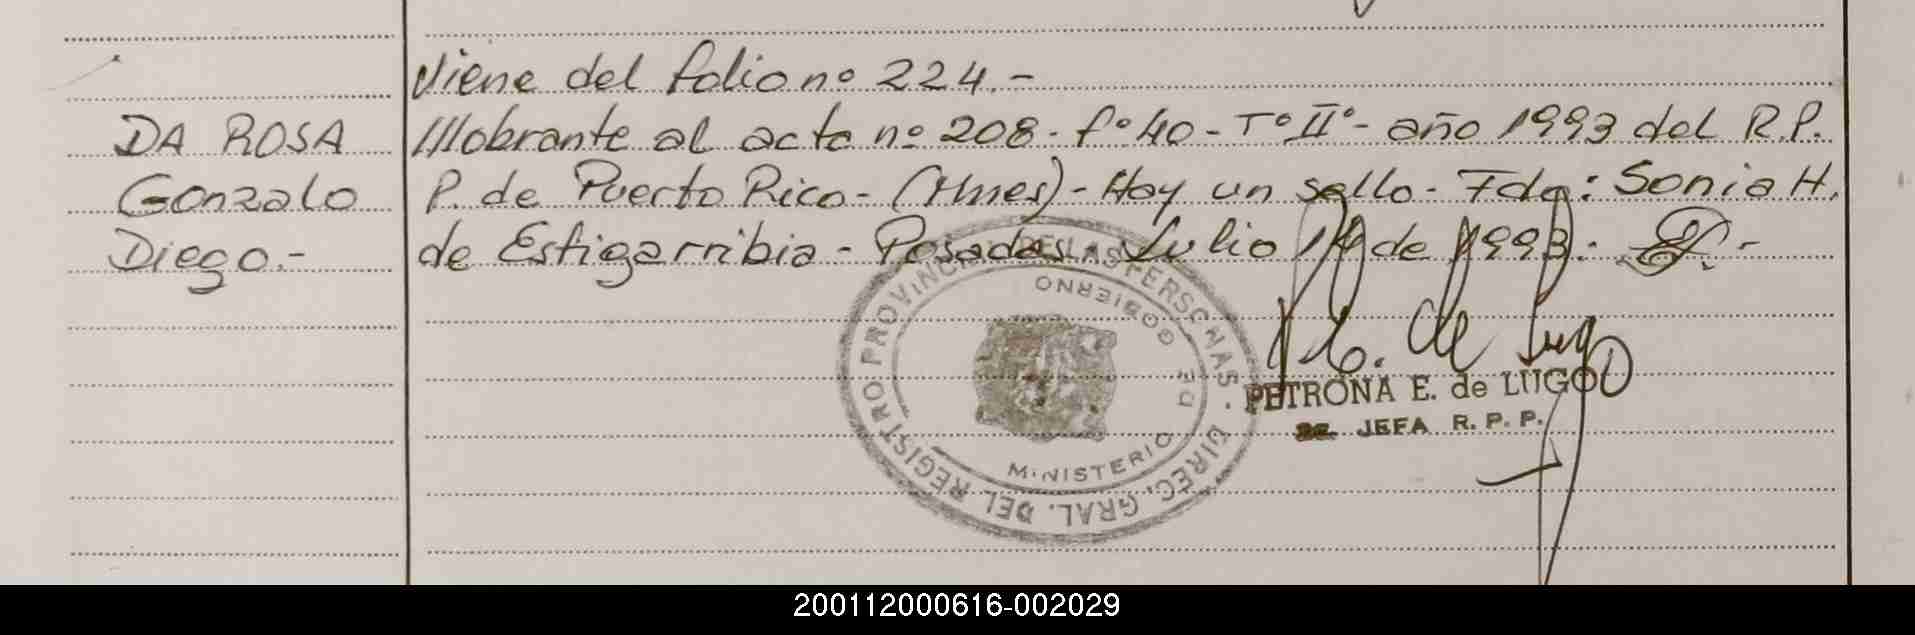 Viene del folio nº 224.-
DA ROSA
Gonzalo
Diego.-
///obrante al acta nº 208. fº 40 - Tº IIº - año 1993 del R.P.
P. de Puerto Rico - (Mnes) - Hay un sello - Fdo: Sonia H.
de Estigarribia - Posadas Julio 14 de 1993.
DIREC. GRAL. DEL REGISTRO PROVINCIAL DE LAS PERSONAS
MINISTERIO DE GOBIERNO
P. E. de Lugo
PETRONA E. de LUGO
JEFA R. P. P.
200112000616-002029